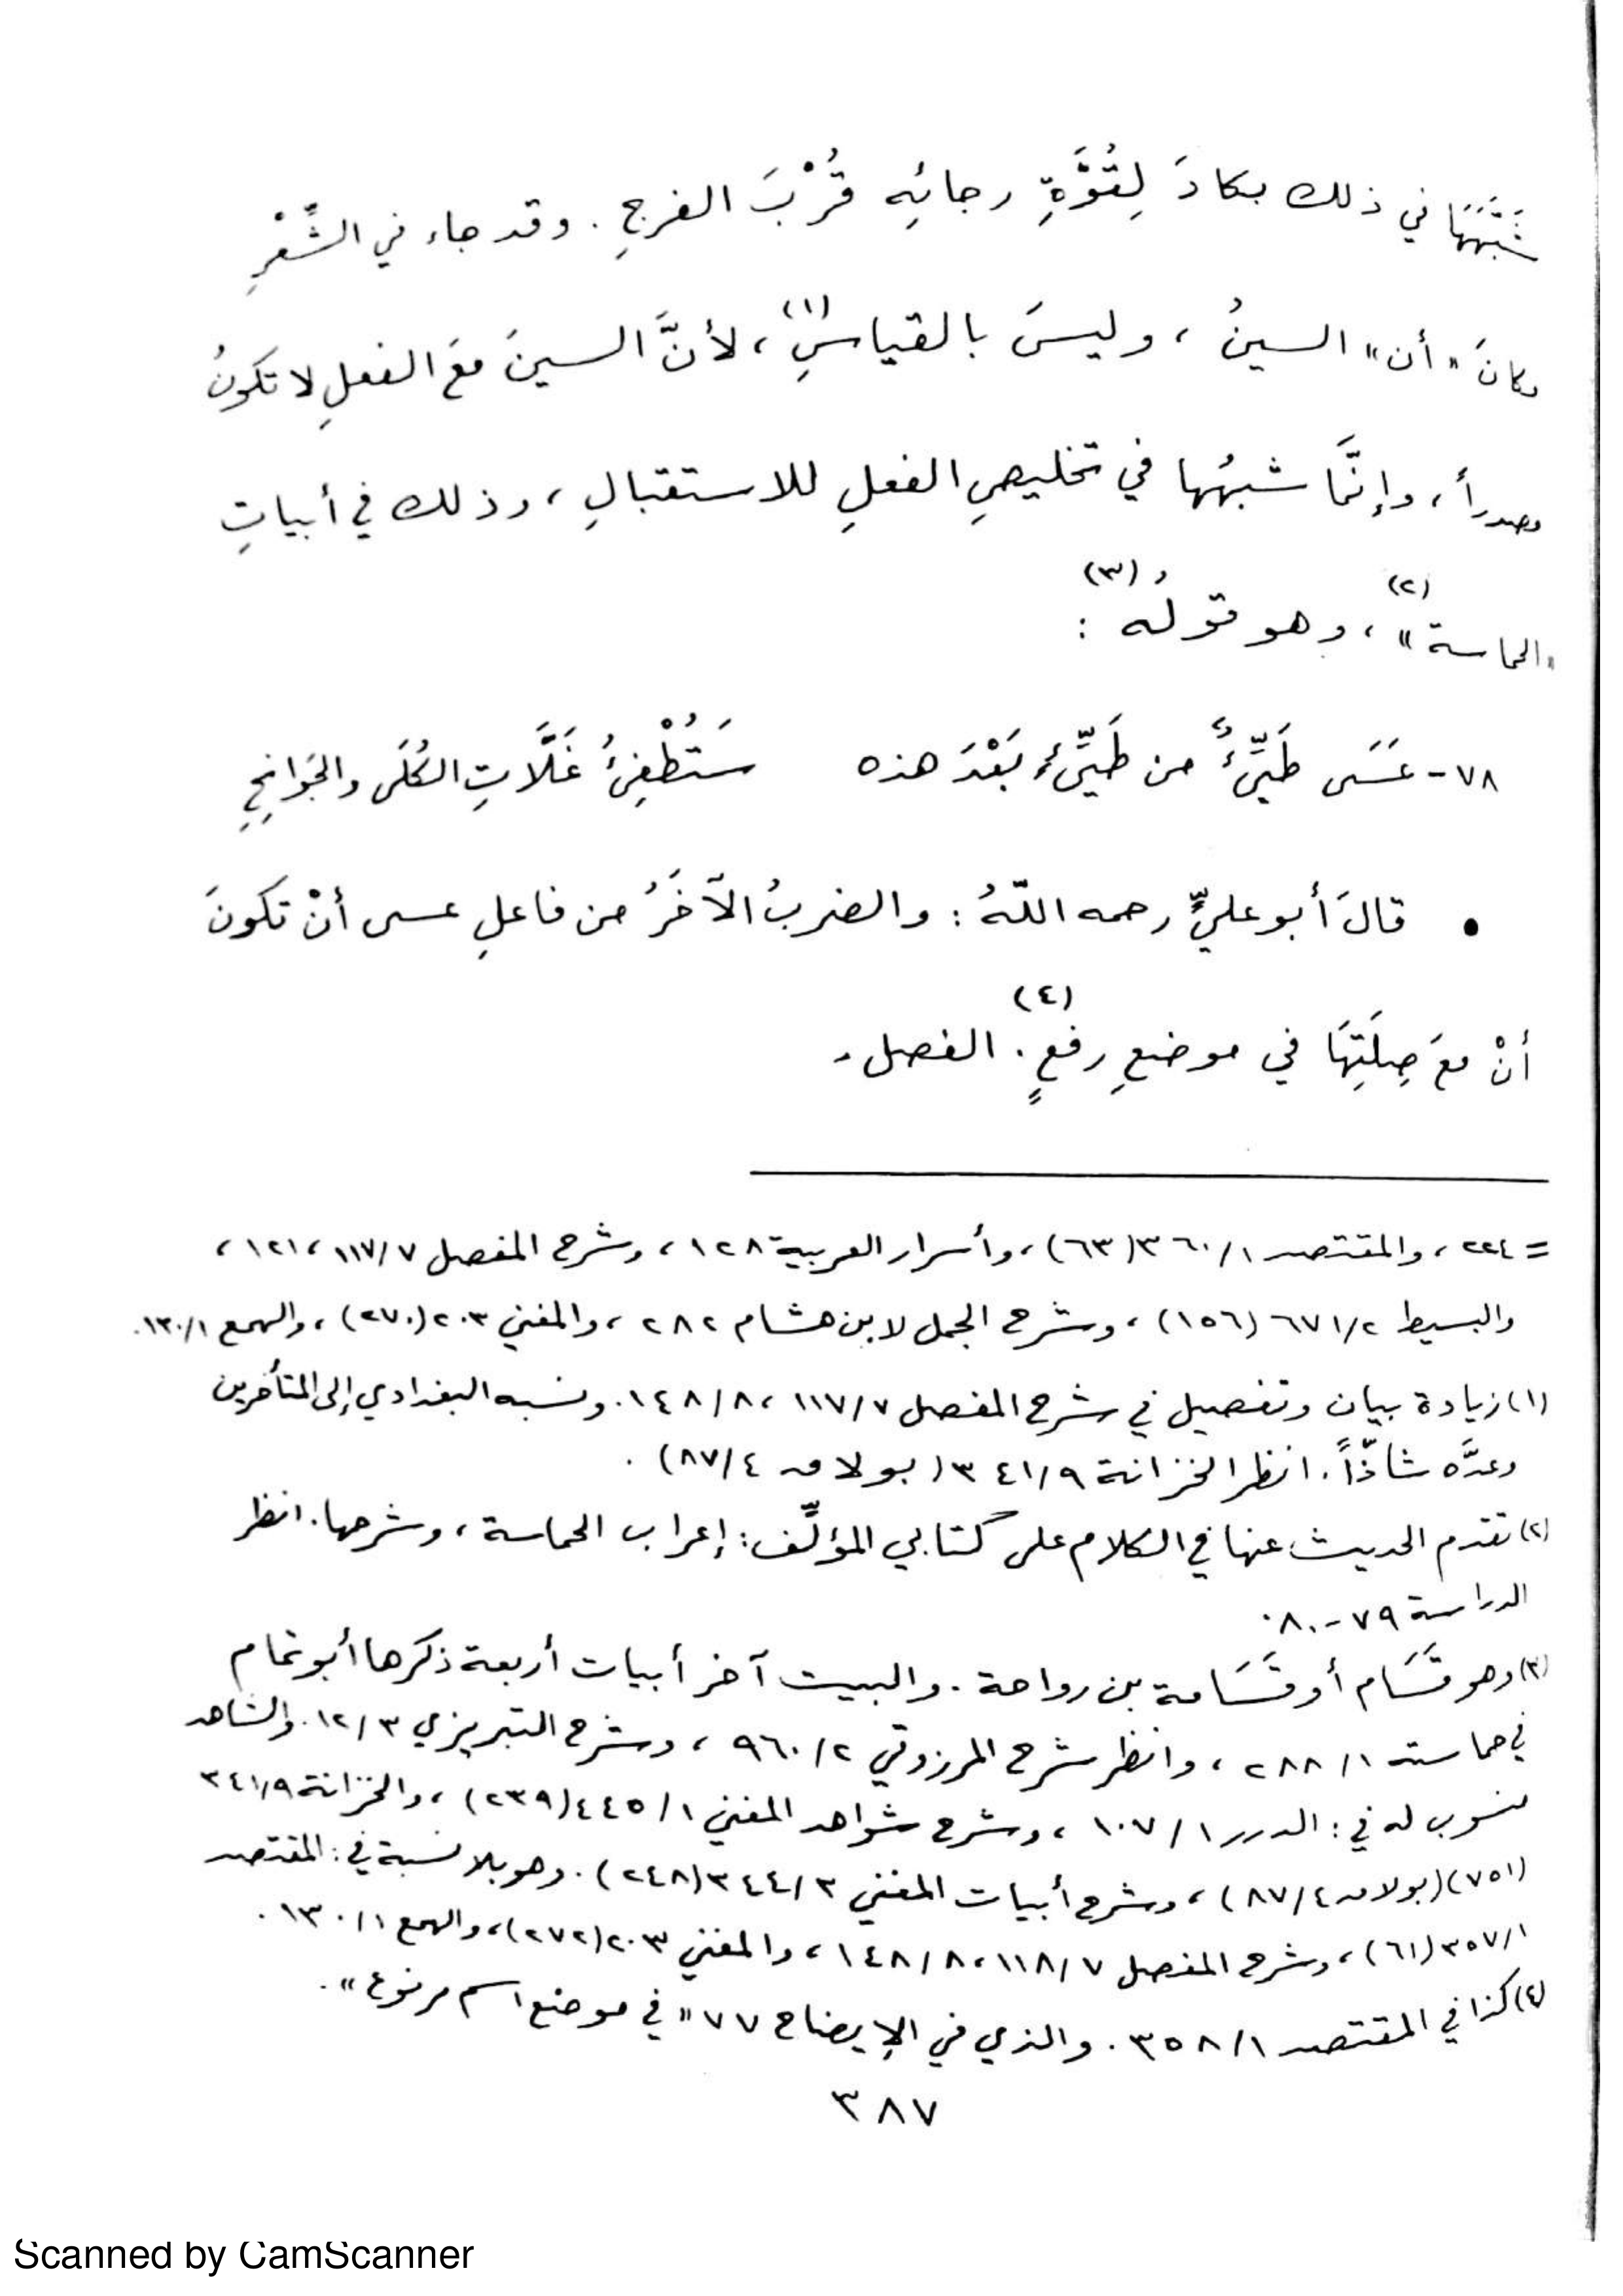 شَبَّهَهَا في ذلك بكادَ لِقُوَّةِ رجائِهِ قُرْبَ الفرجِ . وقد جاء في الشِّعْرِ
مكانَ "أن" السينُ ، وليسَ بالقياسِ(١) ، لأنَّ السينَ معَ الفعلِ لا تكونُ
مصدراً ، وإنَّما شبهُها في تخليصِ الفعلِ للاستقبالِ ، وذلك في أبياتِ
"الحماسة"(٢) ، وهو قولُهُ(٣) :
٧٨- عَسَى طَيِّئٌ من طَيِّئٍ بَعْدَ هذه سَتُطْفِئُ غَلَّاتِ الكُلَى والجَوَانِحِ
• قالَ أبو عليٍّ رحمه اللّهُ : والضربُ الآخَرُ من فاعلِ عسى أنْ تكونَ
أنْ معَ صِلَتِهَا في موضعِ رفعٍ(٤) . الفصل .
= ٢٢٤ ، والمقتصد ٣٦٠/١ (٦٣) ، وأسرار العربية ١٢٨ ، وشرح المفصل ١١٧/٧ ، ١٢١ ،
والبسيط ٦٧١/٢ (١٥٦) ، وشرح الجمل لابن هشام ٢٨٢ ، والمغني ٢٠٣ (٢٧٠) ، والهمع ١٣٠/١.
(١) زيادة بيان وتفصيل في شرح المفصل ١١٧/٧ ، ١٤٨/٨ . ونسبه البغدادي إلى المتأخرين
وعدَّه شاذّاً . انظر الخزانة ٣٤١/٩ (بولاق ٨٧/٤) .
(٢) تقدم الحديث عنها في الكلام على كتابي المؤلِّف : إعراب الحماسة ، وشرحها . انظر
الدراسة ٧٩-٨٠.
(٣) وهو قَسَام أو قَسَامة بن رواحة . والبيت آخر أبيات أربعة ذكرها أبو تمام
في حماسته ٢٨٨/١ ، وانظر شرح المرزوقي ٩٦٠/٢ ، وشرح التبريزي ١٢/٣ . والشاهد
منسوب له في : الدرر ١٠٧/١ ، وشرح شواهد المغني ٤٤٥/١ (٢٣٩) ، والخزانة ٣٤١/٩
(٧٥١) (بولاق ٨٧/٤) ، وشرح أبيات المغني ٣٤٤/٣ (٢٤٨) . وهو بلا نسبة في : المقتصد
٣٥٧/١ (٦١) ، وشرح المفصل ١١٨/٧ ، ١٤٨/٨ ، والمغني ٢٠٣ (٢٧٢) ، والهمع ١٣٠/١ .
(٤) كذا في المقتصد ٣٥٨/١ . والذي في الإيضاح ٧٧ "في موضع اسم مرفوع" .
٣٨٧
Scanned by CamScanner